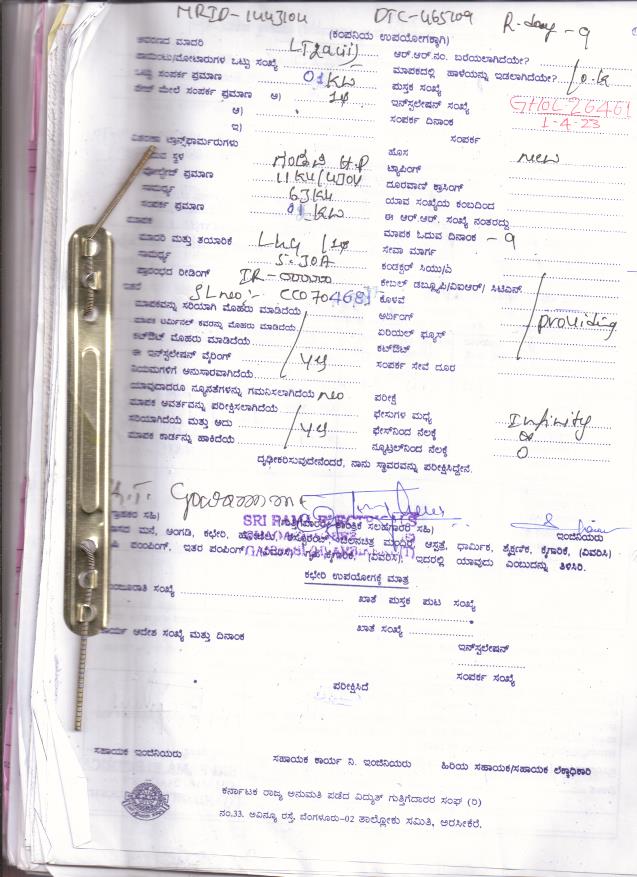 MRID-1443104 DTC-465209 R-day-9
(ಕಂಪನಿಯ ಉಪಯೋಗಕ್ಕಾಗಿ)
ಆವರಣದ ಮಾದರಿ LT2a(ii) ಆರ್.ಆರ್.ನಂ. ಬರೆಯಲಾಗಿದೆಯೇ?
ಪಾಯಿಂಟು/ಮೋಟಾರುಗಳ ಒಟ್ಟು ಸಂಖ್ಯೆ ಮಾಪಕದಲ್ಲಿ ಹಾಳೆಯನ್ನು ಇಡಲಾಗಿದೆಯೇ? o.k
ಒಟ್ಟು ಸಂಪರ್ಕ ಪ್ರಮಾಣ 01 KW ಪುಸ್ತಕ ಸಂಖ್ಯೆ
ಮೇಲೆ ಸಂಪರ್ಕ ಪ್ರಮಾಣ ಅ) 1ϕ ಇನ್‌ಸ್ಟಲೇಷನ್ ಸಂಖ್ಯೆ
ಆ) ಸಂಪರ್ಕ ದಿನಾಂಕ 1-4-23
ಇ) ಸಂಪರ್ಕ
ಟ್ರಾನ್ಸ್‌ಫಾರ್ಮರುಗಳು ಹೊಸ new
ಸ್ಥಳ H.P ಟ್ಯಾಪಿಂಗ್
ವೋಲ್ಟೇಜ್ ಪ್ರಮಾಣ ದೂರವಾಣಿ ಕ್ರಾಸಿಂಗ್
ಸಾಮರ್ಥ್ಯ 63KV ಯಾವ ಸಂಖ್ಯೆಯ ಕಂಬದಿಂದ
ಸಂಪರ್ಕ ಪ್ರಮಾಣ 01 KW ಈ ಆರ್.ಆರ್. ಸಂಖ್ಯೆ ನಂತರದ್ದು
ಮಾಪಕ ಮಾಪಕ ಓದುವ ದಿನಾಂಕ - 9
ಮಾದರಿ ಮತ್ತು ತಯಾರಿಕೆ L&G /1ϕ ಸೇವಾ ಮಾರ್ಗ
ಸಾಮರ್ಥ್ಯ 5-30A ಕಂಡಕ್ಟರ್ ಸಿಯು/ಎ
ಪ್ರಾರಂಭದ ರೀಡಿಂಗ್ IR-000000 ಕೇಬಲ್ ಡಬ್ಲ್ಯೂಪಿ/ವಿಐಆರ್/ ಸಿಟಿಎಸ್
SL no:- ಕೊಳವೆ
ಮಾಪಕವನ್ನು ಸರಿಯಾಗಿ ಮೊಹರು ಮಾಡಿದೆಯೆ ಅರ್ಥಿಂಗ್ providing
ಮಾಪಕ ಟರ್ಮಿನಲ್ ಕವರನ್ನು ಮೊಹರು ಮಾಡಿದೆಯೆ ಏರಿಯಲ್ ಫ್ಯೂಸ್
ಕಟ್‌ಔಟ್ ಮೊಹರು ಮಾಡಿದೆಯೆ ಕಟ್‌ಔಟ್
ಈ ಇನ್‌ಸ್ಟಲೇಷನ್ ವೈರಿಂಗ್ yes ಸಂಪರ್ಕ ಸೇವೆ ದೂರ
ನಿಯಮಗಳಿಗೆ ಅನುಸಾರವಾಗಿದೆಯೆ
ಯಾವುದಾದರೂ ನ್ಯೂನತೆಗಳನ್ನು ಗಮನಿಸಲಾಗಿದೆಯೆ no ಪರೀಕ್ಷೆ
ಮಾಪಕ ಆವರ್ತವನ್ನು ಪರೀಕ್ಷಿಸಲಾಗಿದೆಯೆ ಫೇಸುಗಳ ಮಧ್ಯೆ Infinity
ಸರಿಯಾಗಿದೆಯೆ ಮತ್ತು ಅದು yes ಫೇಸ್‌ನಿಂದ ನೆಲಕ್ಕೆ
ಮಾಪಕ ಕಾರ್ಡನ್ನು ಹಾಕಿದೆಯೆ ನ್ಯೂಟ್ರಲ್‌ನಿಂದ ನೆಲಕ್ಕೆ 0
ದೃಢೀಕರಿಸುವುದೇನೆಂದರೆ, ನಾನು ಸ್ಥಾವರವನ್ನು ಪರೀಕ್ಷಿಸಿದ್ದೇನೆ.
SRI RAMA ELECTRICALS
ಗುತ್ತಿಗೆದಾರರ/ತಾಂತ್ರಿಕ ಸಲಹೆಗಾರರ ಸಹಿ) ಇಂಜಿನಿಯರು
ಮನೆ, ಅಂಗಡಿ, ಕಛೇರಿ, ಮಂದಿರ, ಆಸ್ಪತ್ರೆ, ಧಾರ್ಮಿಕ, ಶೈಕ್ಷಣಿಕ, ಕೈಗಾರಿಕೆ, (ವಿವರಿಸಿ)
ಪಂಪಿಂಗ್, ಇತರ ಪಂಪಿಂಗ್ (ವಿವರಿಸಿ) ಗೃಹ ಕೈಗಾರಿಕೆ, (ವಿವರಿಸಿ) ಇದರಲ್ಲಿ ಯಾವುದು ಎಂಬುದನ್ನು ತಿಳಿಸಿರಿ.
ಕಛೇರಿ ಉಪಯೋಗಕ್ಕೆ ಮಾತ್ರ
ಸಂಖ್ಯೆ ಖಾತೆ ಪುಸ್ತಕ ಪುಟ ಸಂಖ್ಯೆ
ಕಾರ್ಯ ಆದೇಶ ಸಂಖ್ಯೆ ಮತ್ತು ದಿನಾಂಕ ಖಾತೆ ಸಂಖ್ಯೆ
ಇನ್‌ಸ್ಟಲೇಷನ್
ಸಂಪರ್ಕ ಸಂಖ್ಯೆ
ಪರೀಕ್ಷಿಸಿದೆ
ಸಹಾಯಕ ಇಂಜಿನಿಯರು ಸಹಾಯಕ ಕಾರ್ಯ ನಿ. ಇಂಜಿನಿಯರು ಹಿರಿಯ ಸಹಾಯಕ/ಸಹಾಯಕ ಲೆಕ್ಕಾಧಿಕಾರಿ
ಕರ್ನಾಟಕ ರಾಜ್ಯ ಅನುಮತಿ ಪಡೆದ ವಿದ್ಯುತ್ ಗುತ್ತಿಗೆದಾರರ ಸಂಘ (ರಿ)
ನಂ.33, ಅವಿನ್ಯೂ ರಸ್ತೆ, ಬೆಂಗಳೂರು-02 ತಾಲ್ಲೋಕು ಸಮಿತಿ, ಅರಸೀಕೆರೆ.